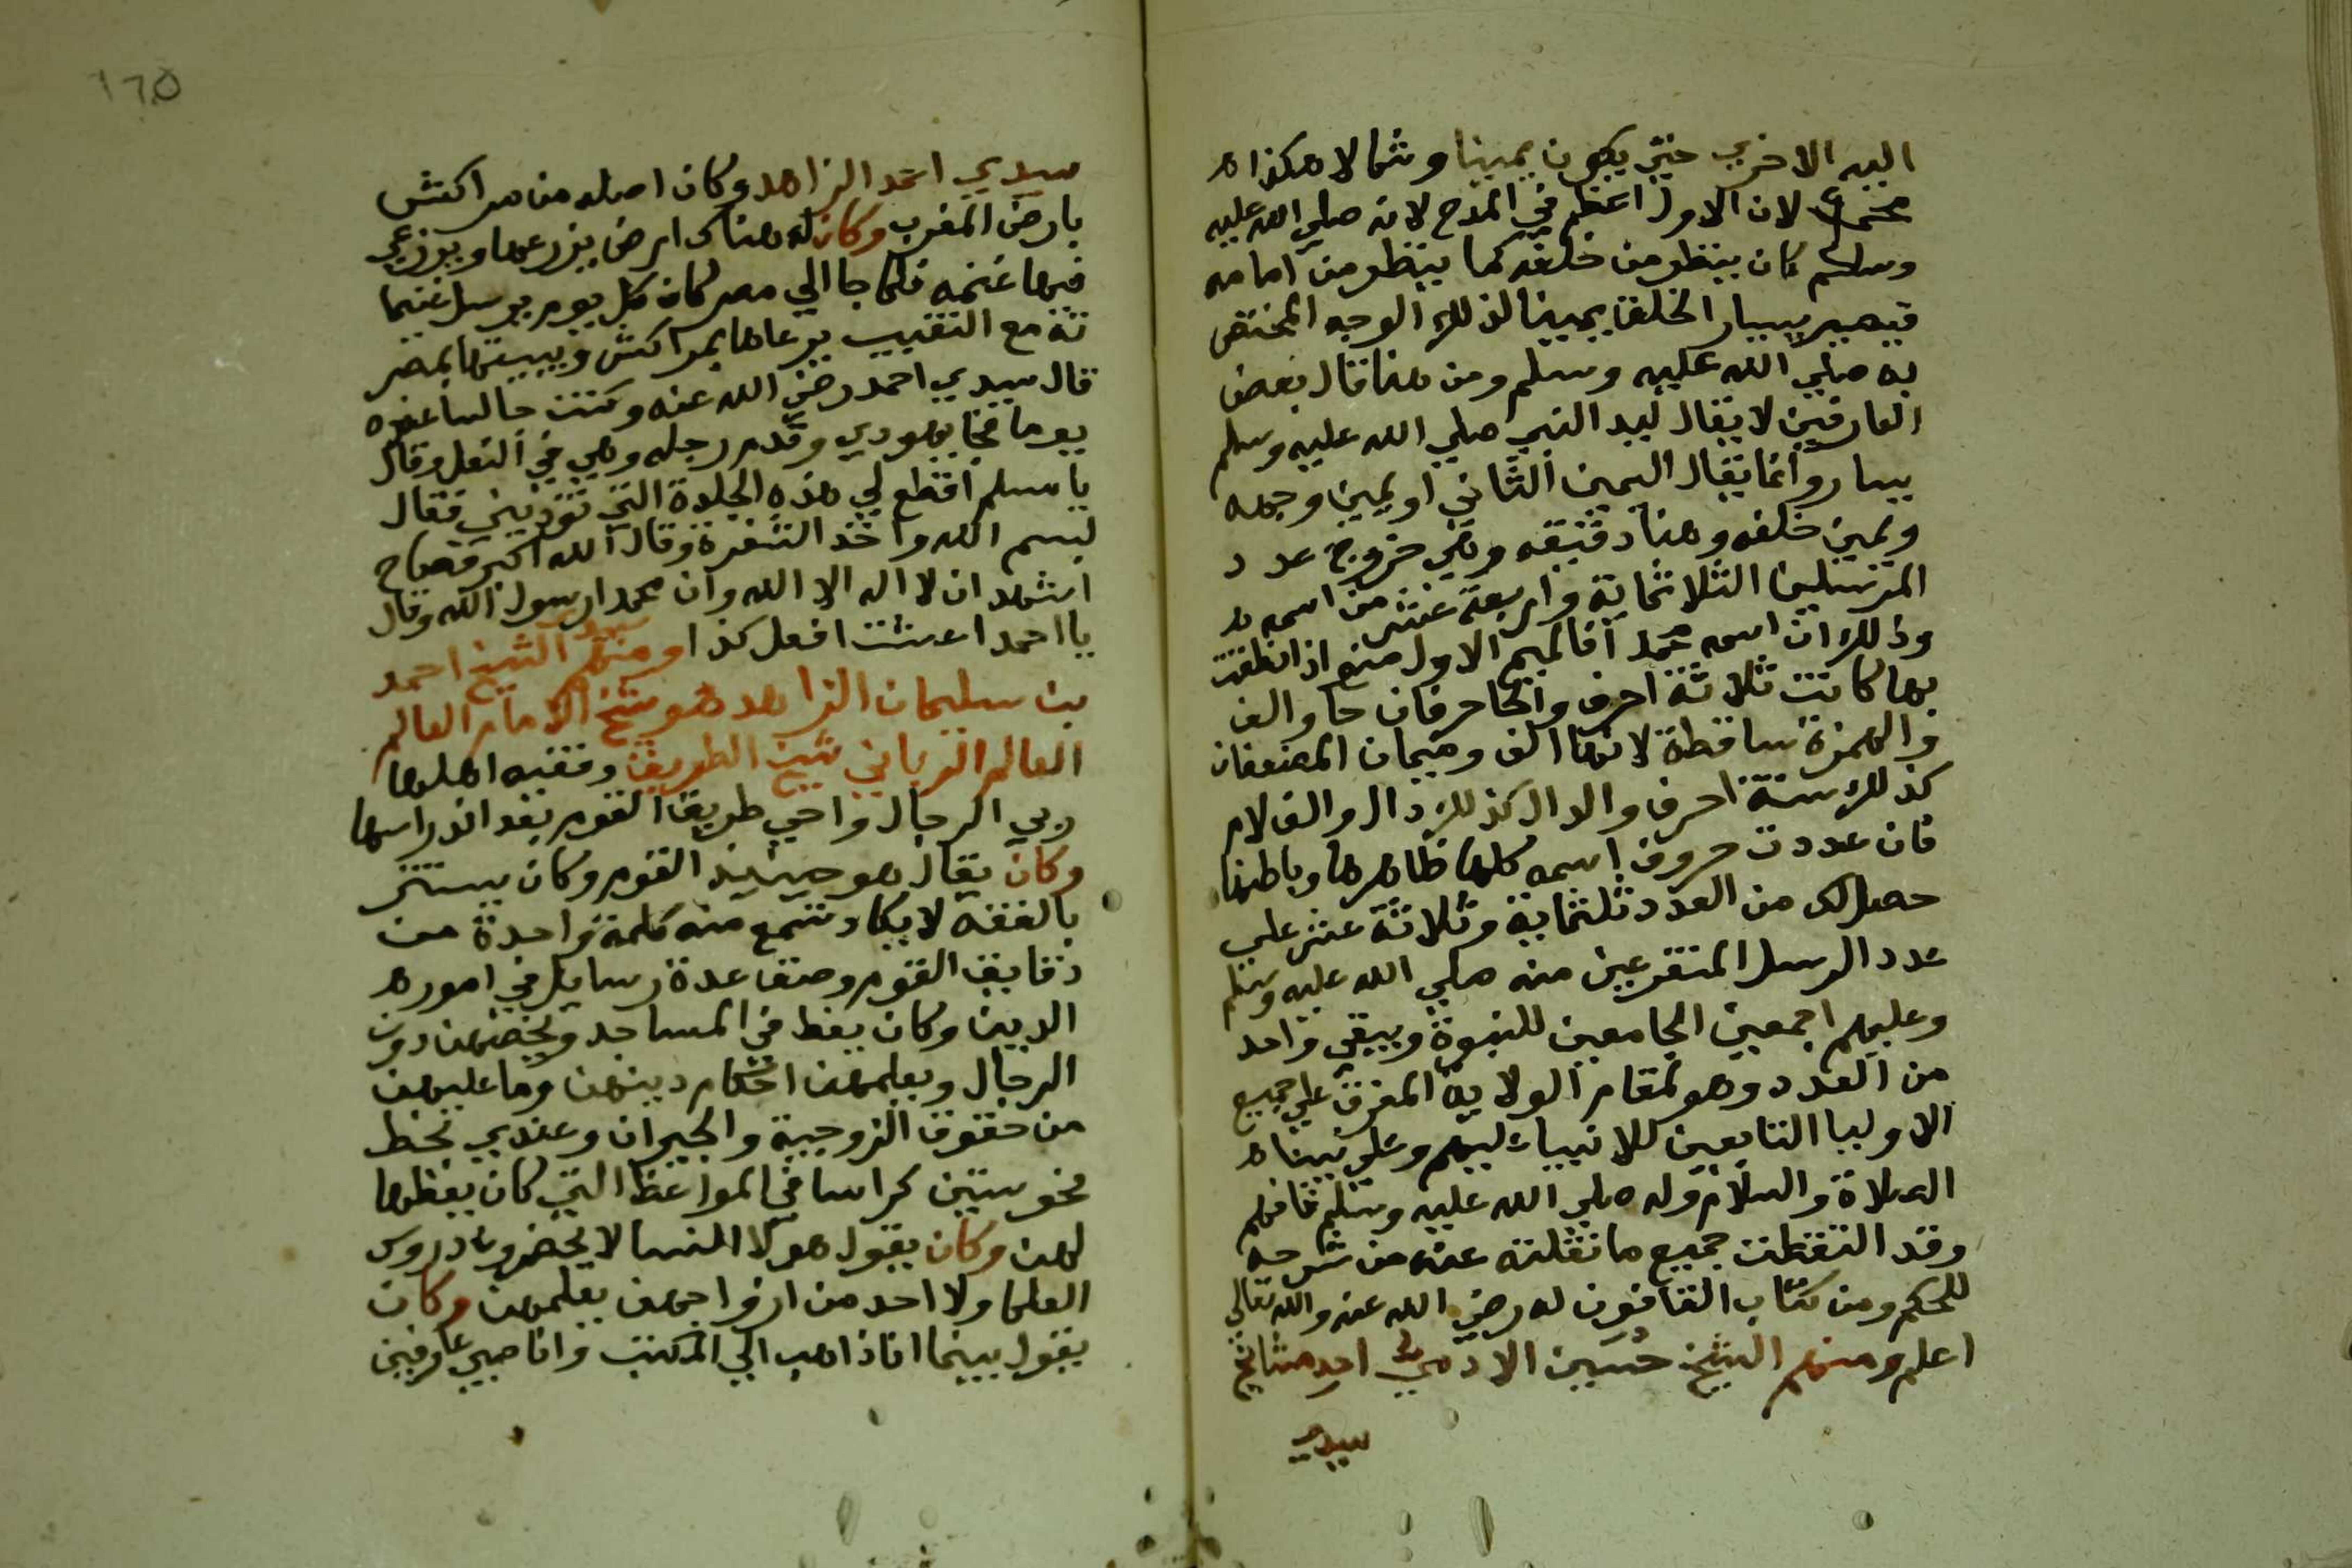 اليه الاخري حتي يكون يمينا وشمالا هكذا ه
لان الاول اعظم في المدح لانه صلي الله عليه
وسلم كان ينظر من خلفه كما ينظر من امامه
فيصير يسار الخلق يمينا لذلك الوجه المختص
به صلي الله عليه وسلم ومن هنا قال بعض
العارفين لا يقال ليد النبي صلي الله عليه وسلم
يسار وانما يقال اليمين الثاني او يمين وجهه
ويمين خلفه وهنا دقيقه وهي خروج عدد
المرسلين الثلاثماية واربعة عشر من اسمه م
وذلك ان اسمه محمد فالميم الاول منه اذا نطقت
بها كانت ثلاثة احرف والحا حرفان حا والف
والهمزة ساقطة لانها الف وميمان المضعفان
كذلك ستة احرف والدال كذلك دال والف لام
فان عددت حروف اسمه كلها ظاهرها وباطنها
حصل لك من العدد ثلثماية وثلاثة عشر علي
عدد الرسل المتفرعين منه صلي الله عليه وسلم
وعليهم اجمعين الجامعين للنبوة ويبقي واحد
من العدد وهو لمقام الولاية المفرق علي جميع
الاوليا التابعين للانبيا عليهم وعلي نبينا ه
الصلاة والسلام وله صلي الله عليه وسلم فافهم
وقد التقطت جميع ما نقلته عنه من شرحه
للحكم ومن كتاب القانون له رضي الله عنه والله تعالي
اعلم ومنهم الشيخ حسين الادمي احد مشايخ
سيدي
١٦٥
سيدي احمد الزاهد وكان اصله من مراكش
بارض المغرب وكان له هناك ارض يزرعها ويرعي
فيها غنمه فلما جا الي مصر كان كل يوم يرسل غنما
ته مع النقيب يرعاها بمراكش ويبيتها بمصر
قال سيدي احمد رضي الله عنه وكنت جالسا عنده
يوما فجا يهودي وقدم رجله وهي في النعل وقال
يا مسلم اقطع لي هذه الجلدة التي تؤذيني فقال
بسم الله واخذ الشفرة وقال الله اكبر فصاح
اشهد ان لا اله الا الله وان محمدا رسول الله وقال
يا احمد اعشت افعل كذا ومنهم سيدي الشيخ احمد
بن سليمان الزاهد هو شيخ الامام العالم
العالم الرباني شيخ الطريق وفقيه اهلها
ربي الرجال واحي طريق القوم بعد اندراسها
وكان يقال هو جنيد القوم وكان يستتر
بالفقه لا يكاد تسمع منه كلمة واحدة من
دقايق القوم وصنف عدة رسايل في امور ه
الدين وكان يعظ في المساجد ويخصهن دون
الرجال ويعلمهن احكام دينهن وما عليهن
من حقوق الزوجية والجيران وعندي بخط
نحو ستين كراسا في المواعظ التي كان يعظها
لهن وكان يقول هولا النسا لا يحضرون دروس
العلما ولا احد من ازواجهن يعلمهن وكان
يقول بينما انا ذاهب الي المكتب وانا صبي عارفين